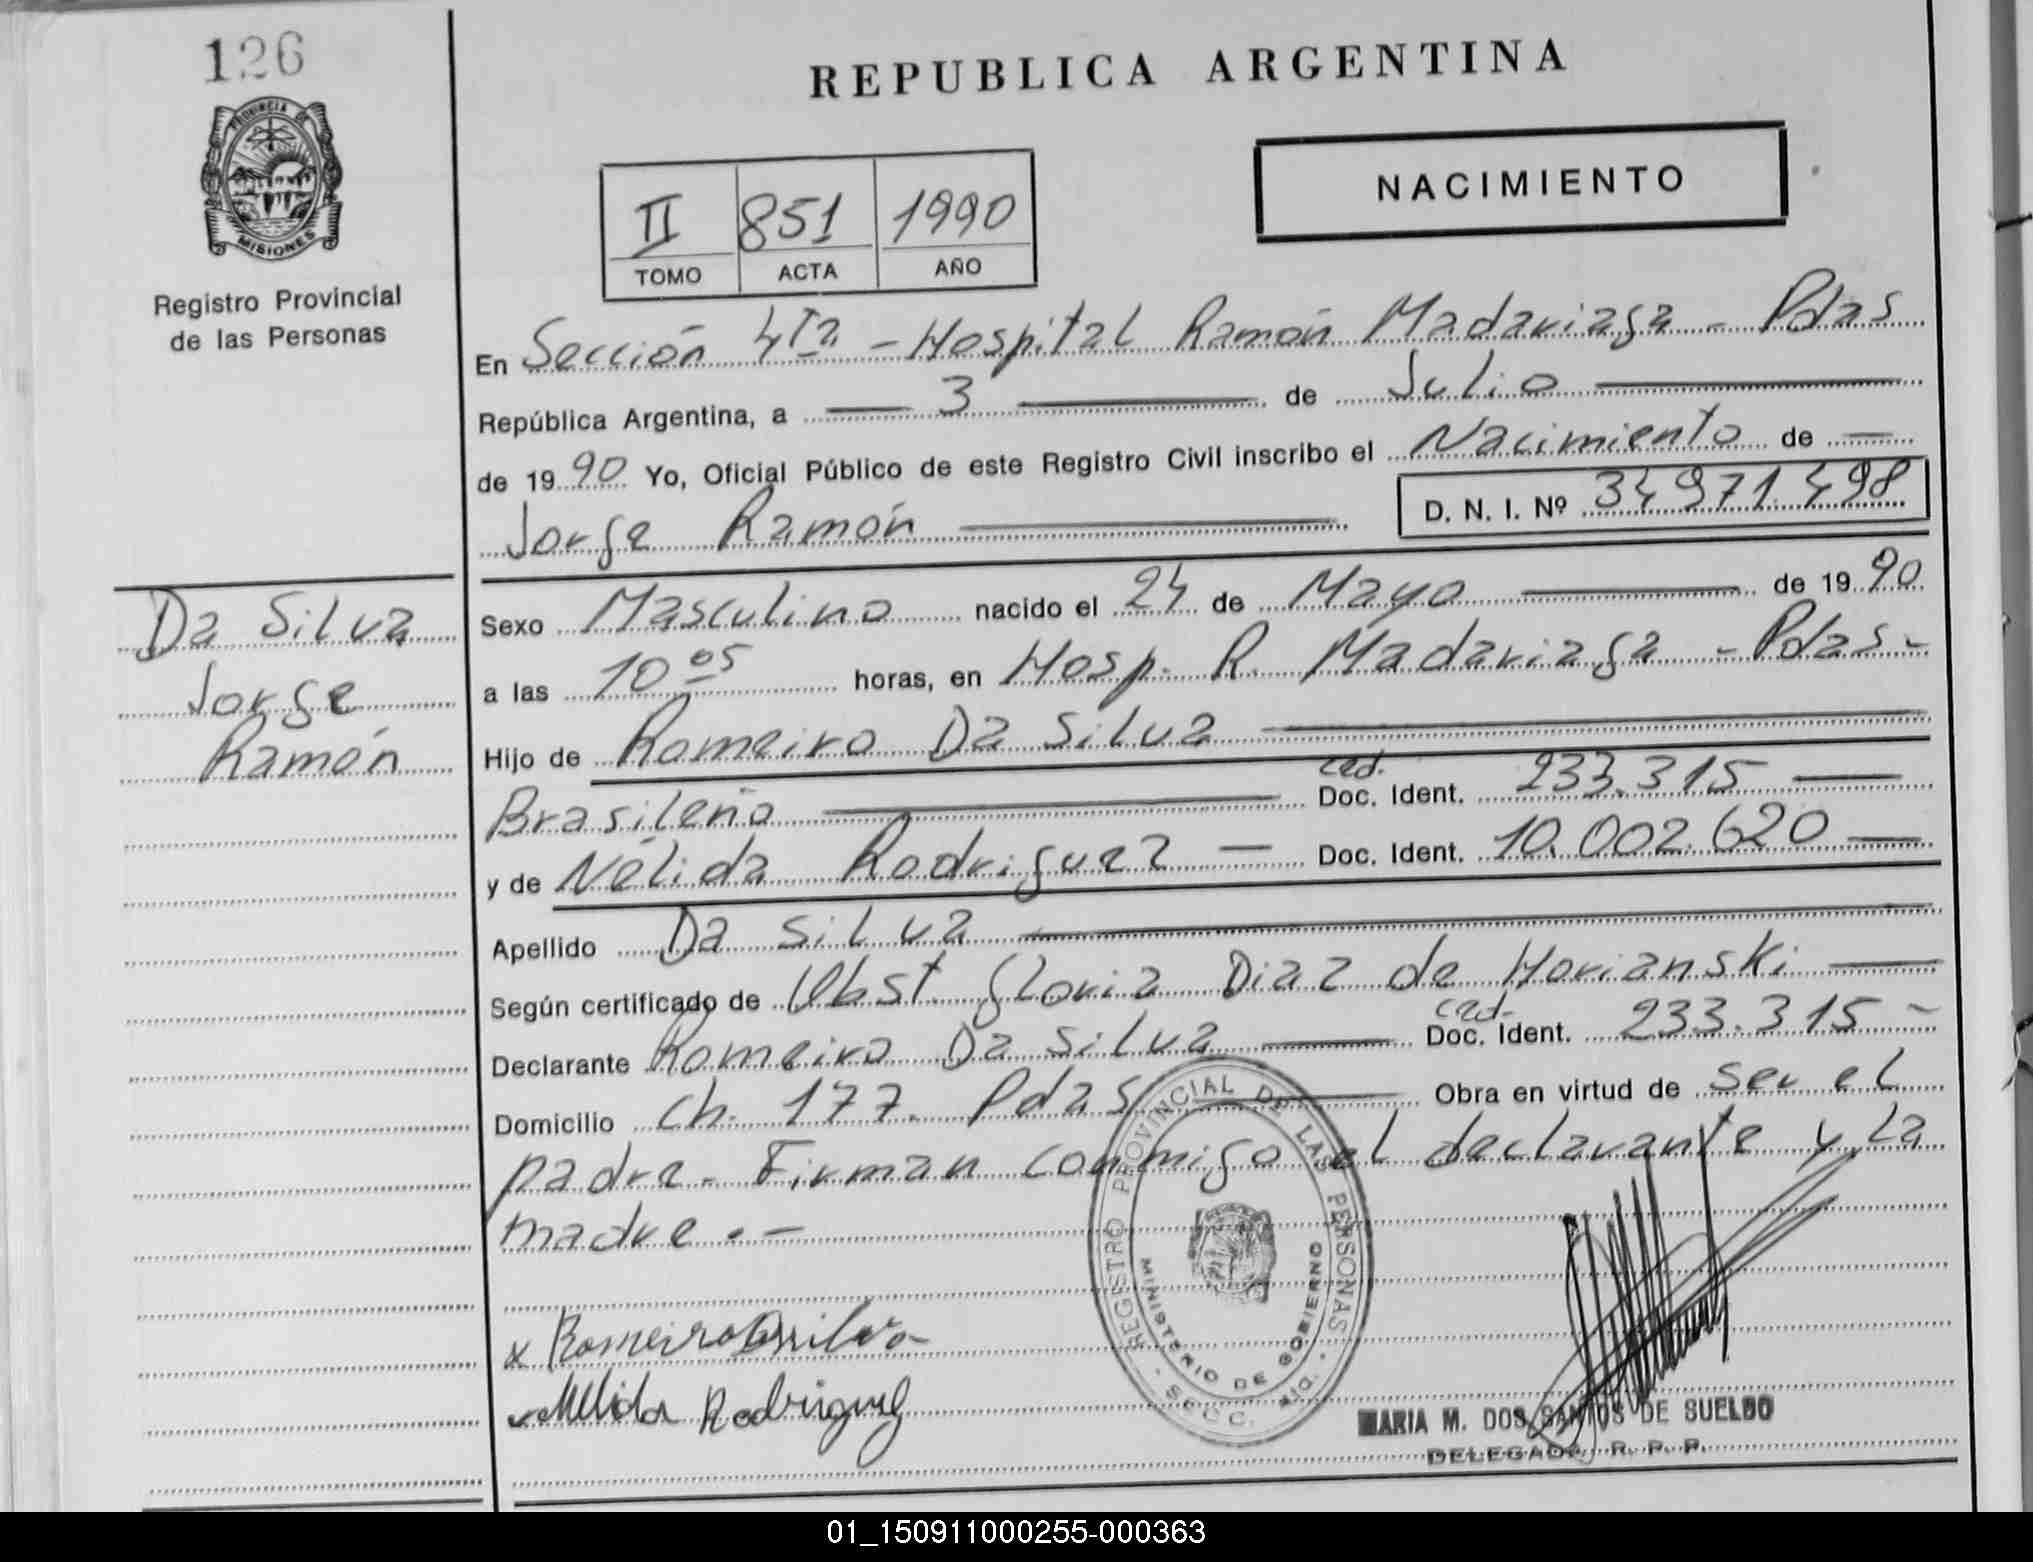 126
PROVINCIA DE
MISIONES
Registro Provincial
de las Personas
REPUBLICA ARGENTINA
II 851 1990
TOMO ACTA AÑO
NACIMIENTO
En Sección 4ta - Hospital Ramón Madariaga - Pdas
República Argentina, a — 3 — de Julio —
de 1990 Yo, Oficial Público de este Registro Civil inscribo el Nacimiento de —
Jorge Ramón — D. N. I. Nº 34971.498
Da Silva
Jorge
Ramón
Sexo Masculino nacido el 24 de Mayo — de 1990
a las 10 05 horas, en Hosp. R. Madariaga - Pdas -
Hijo de Romeiro Da Silva —
Brasileño — ced. Doc. Ident. 233.315 —
y de Nélida Rodriguez — Doc. Ident. 10.002.620 —
Apellido Da Silva —
Según certificado de Obst. Gloria Diaz de Horianski —
Declarante Romeiro Da Silva — ced. Doc. Ident. 233.315 -
Domicilio Ch. 177. Pdas — Obra en virtud de ser el
padre. Firman conmigo el declarante y la
madre . -
x Romeiro Da silva
Nélida Rodriguez
REGISTRO PROVINCIAL DE LAS PERSONAS
MINISTERIO DE GOBIERNO
MARIA M. DOS SANTOS DE SUELDO
DELEGADA R. P. P.
01_150911000255-000363